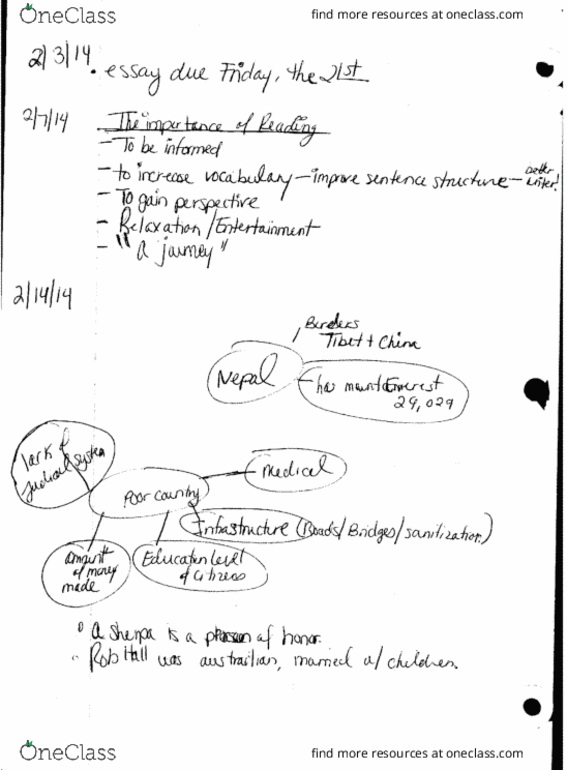 OneClass
find more resources at oneclass.com
2/3/14
• essay due Friday, the 21st
2/7/14
The importance of Reading
- To be informed
- to increase vocabulary - improve sentence structure - better writer!
- To gain perspective
- Relaxation/Entertainment
- "A journey"
2/14/14
Borders
Tibet + China
Nepal
has mount Everest
29,029
lack of
judicial system
Medical
Poor country
Infrastructure (Roads/Bridges/sanitization)
amount
of money
made
Education level
of citizens
• A Sherpa is a person of honor.
• Rob Hall was austrailian, married w/ children.
OneClass
find more resources at oneclass.com